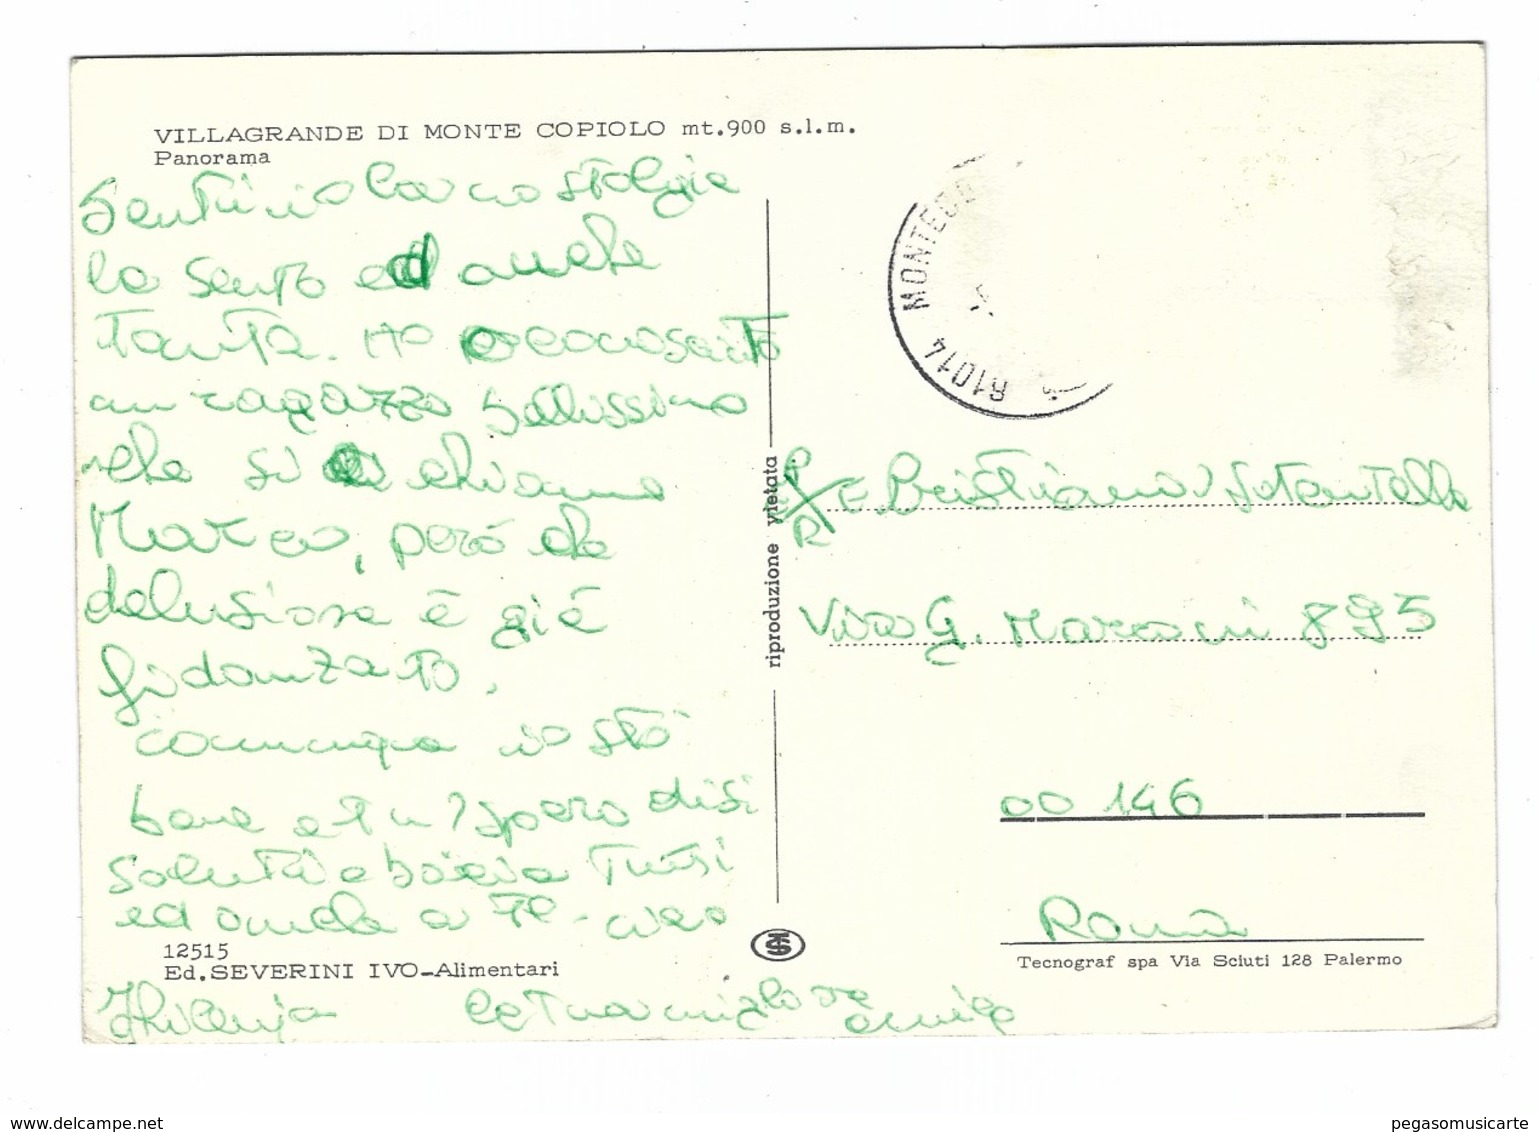 VILLAGRANDE DI MONTE COPIOLO mt.900 s.l.m.
Panorama
la nostalgia
la sento ed anche
tanta. Ho conosciuto
un ragazzo bellissimo
che si chiama
Marco, però che
delusione è già
fidanzato.
comunque io stò
bene e tu? spero di si
saluta e bacia tutti
ed anche a te. ciao
la tua migliore amica
12515
Ed. SEVERINI IVO-Alimentari
riproduzione vietata
61014 MONTECE
P
E
R
E. Cristiano
Via G. Marconi 895
00146
Roma
Tecnograf spa Via Sciuti 128 Palermo
www.delcampe.net
pegasomusicarte